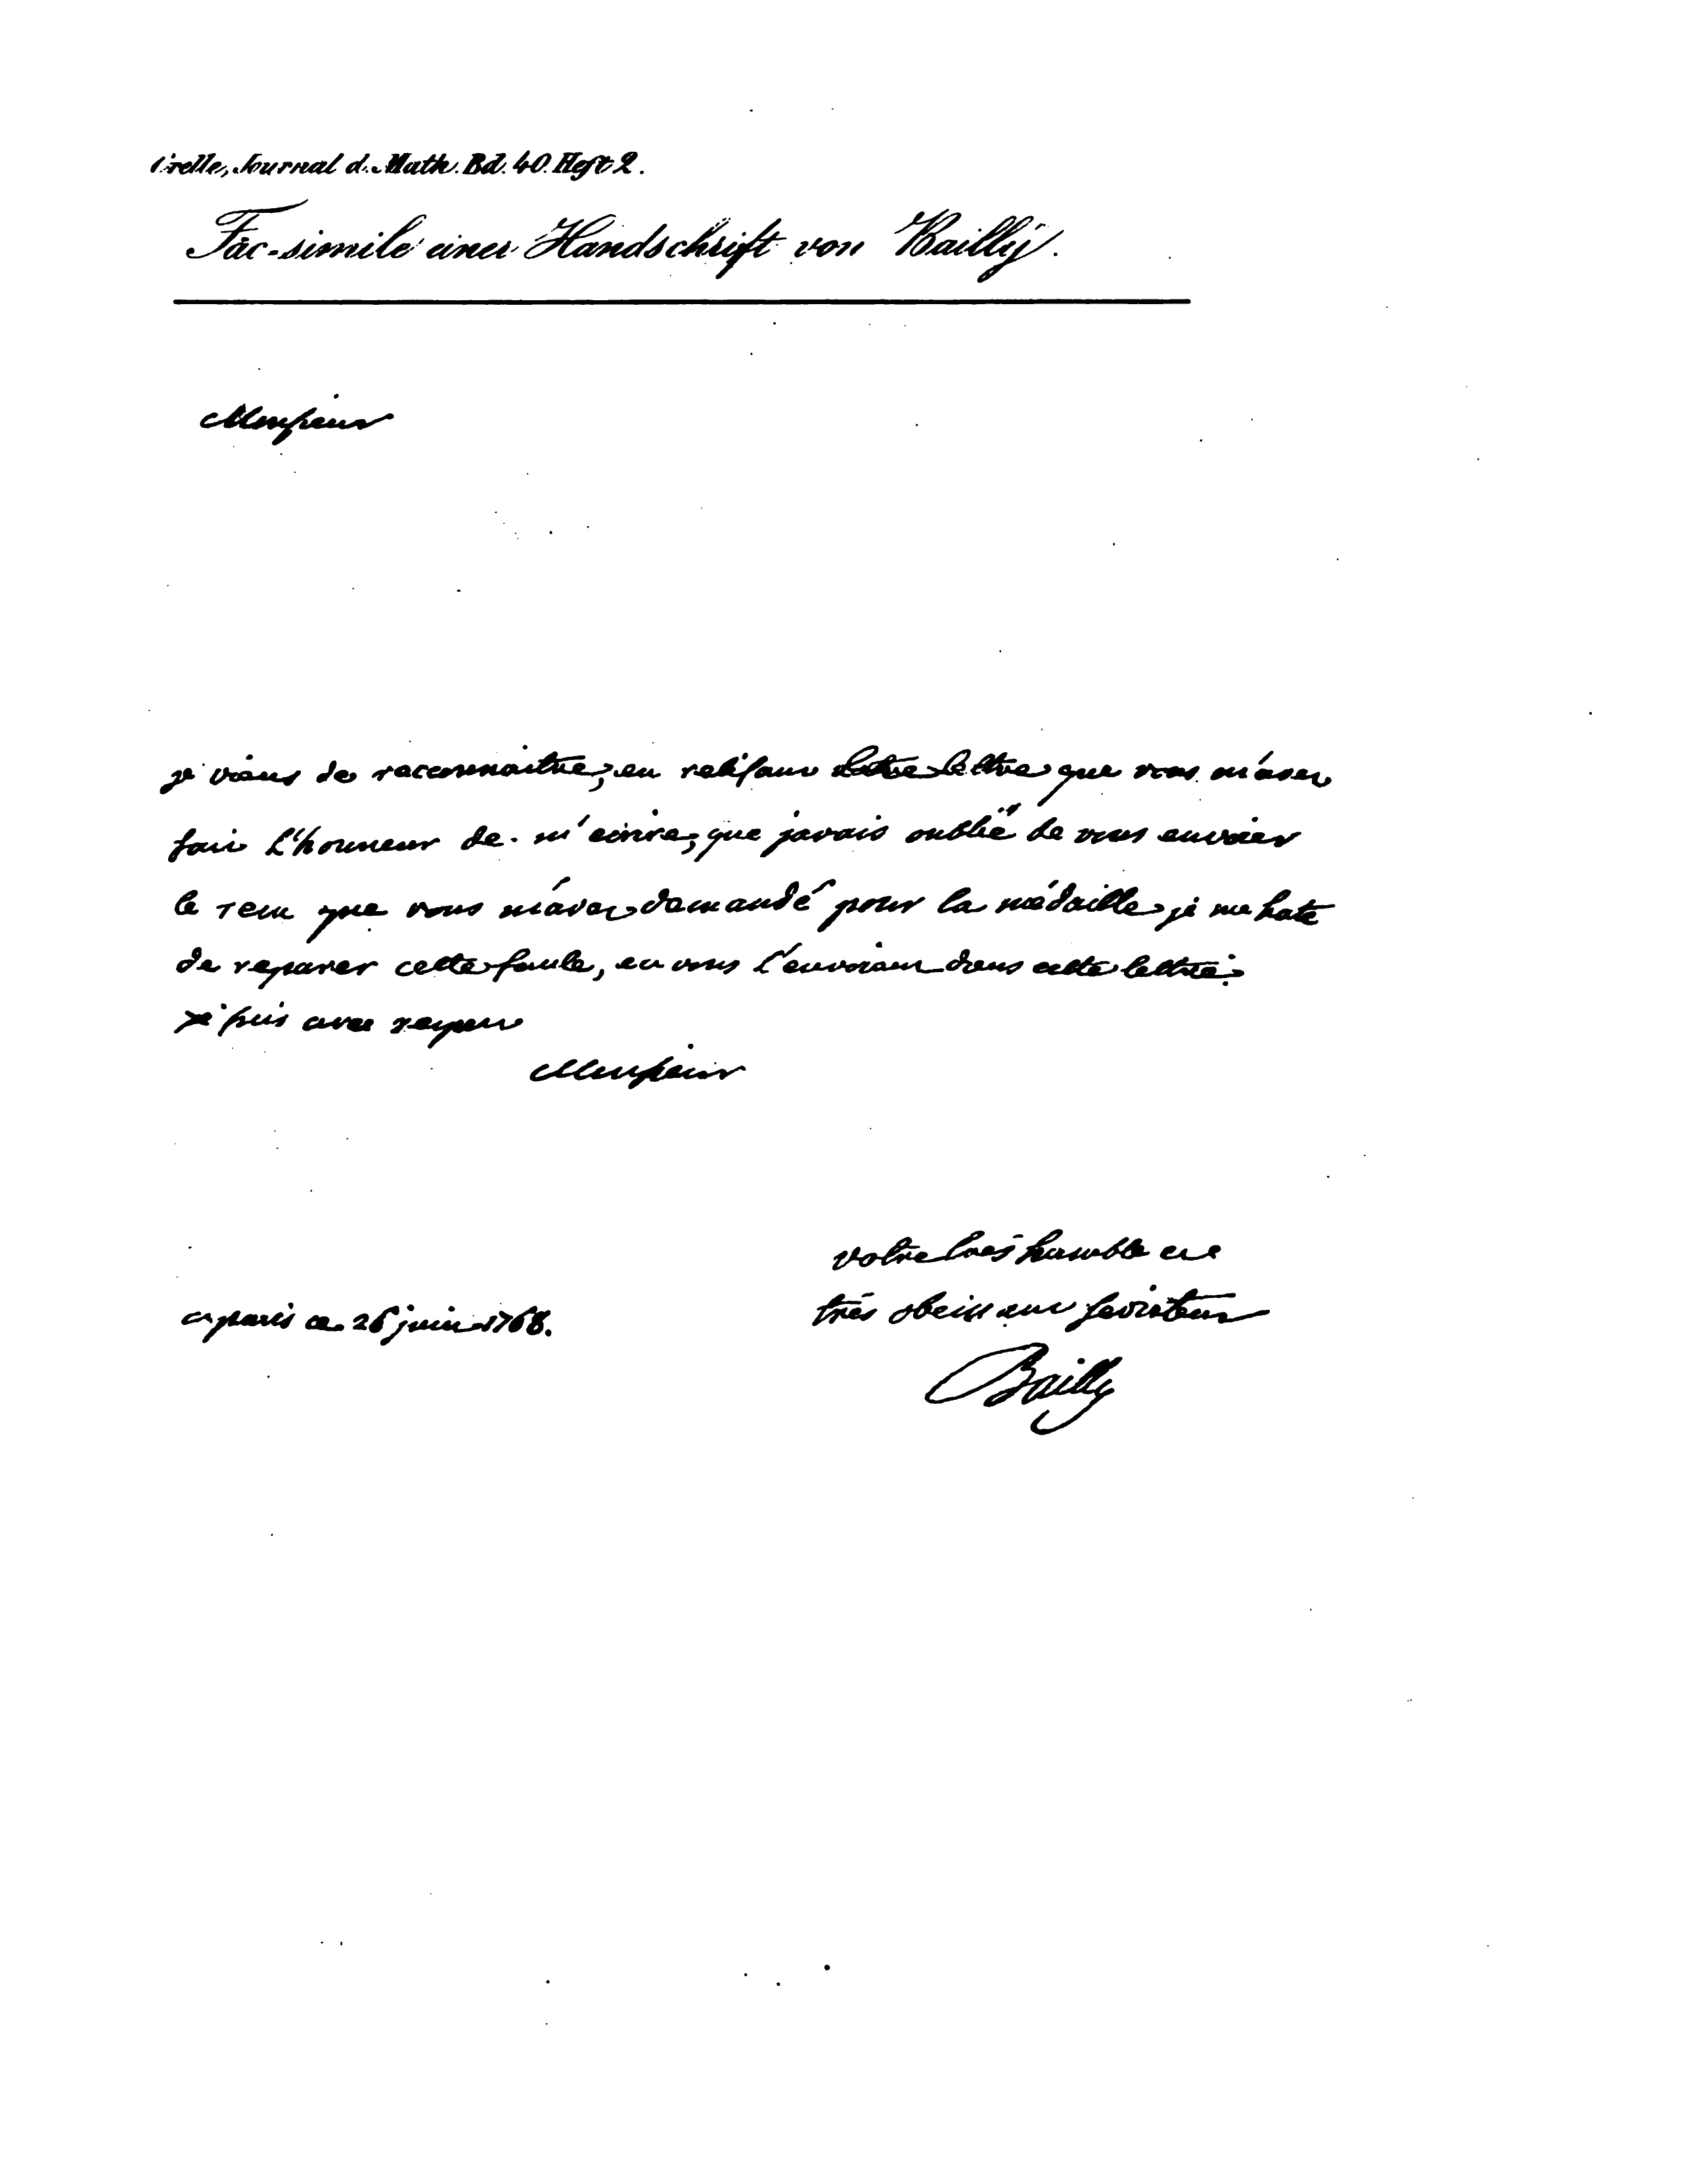 Crelle, Journal d. Math. Bd. 40. Heft 2.
Fac-simile einer Handschrift von Bailly.
Monsieur
je viens de reconnaitre, en relisant lettre que vous m'avez
fait l'honneur de m'ecrire, que javais oublié de vous envoier
le recu que vous m'avez demandé pour la médaille je me hate
de reparer cette faute, en vous l'envoiant dans cette lettre.
je suis avec respect
Monsieur
votre trés humble et
trés obeissant serviteur
a paris ce 26 juin 1768.
Bailly